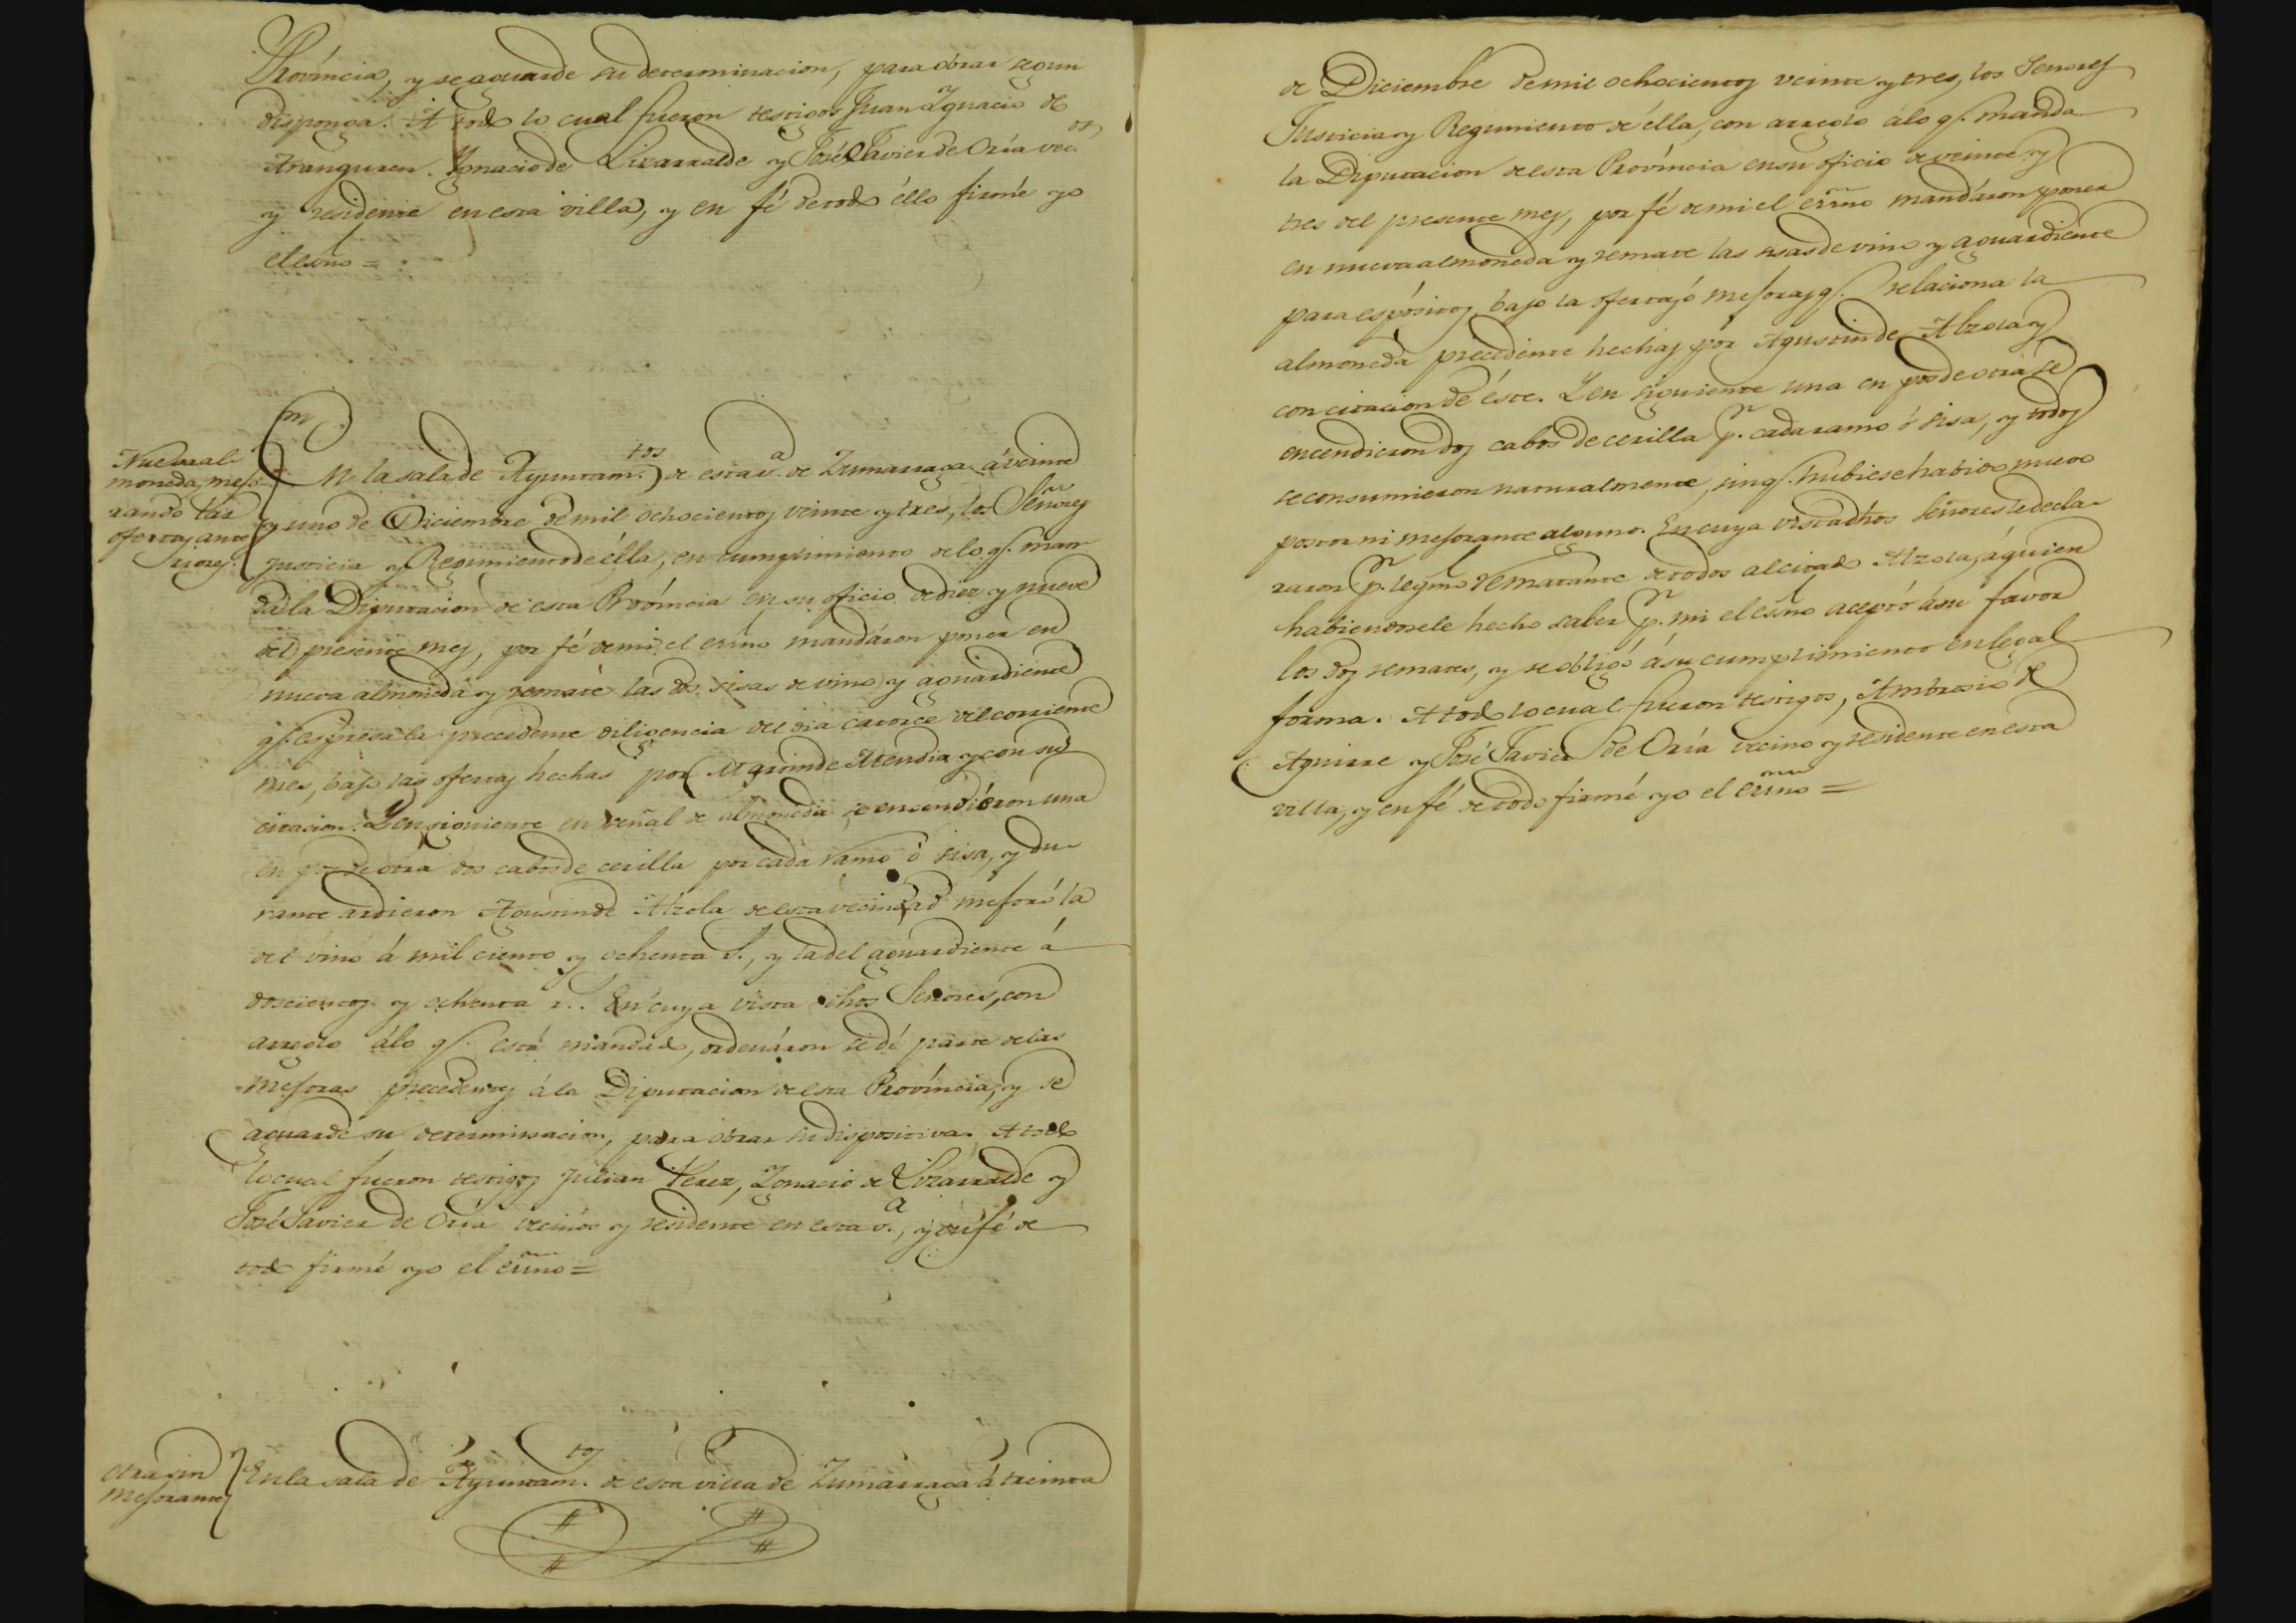 Província, y se aguarde su determinacion, para obrar segun
disponga. A todo lo cual fueron testigos Juan Ygnacio de
Aranguren. Ygnacio de Lizarralde y José Javier de Oría vec.os
y residente en esta villa, y en fé de todo éllo firmé yo
el esno =
Nueva al-
moneda, mejo-
rando las
ofertas ante-
riores.
En la sala de Ayuntam.tos de esta v.a de Zumarraga á veinte
y uno de Diciembre de mil ochocientos veinte y tres, los Señores
Justicia y Regimiento de élla, en cumplimiento de lo q.e man-
da la Diputacion de esta Província en su oficio de diez y nueve
del presente mes, por fé de mi el esrno mandáron poner en
nueva almoneda y remate las dos sisas de vino y aguardiente
q.e espresa la precedente diligencia del dia catorce del corriente
mes, bajo las ofertas hechas por Agustin de Mendia y con su
citacion. Y en siguiente en señal de almoneda se encendiéron una
en pos de otra dos cabos de cerilla por cada ramo ó sisa, y du-
rante ardieron Agustin de Alzola de esta vecindad mejoró la
del vino á mil ciento y ochenta r.s, y la del aguardiente á
doscientos y ochenta r.s. En cuya vista dhos Señores, con
arreglo álo q.e está mandado, ordenáron se dé parte de las
mejoras precedentes á la Diputacion de esta Província, y se
aguarde su determinacion, para obrar su dispositiva. A todo
lo cual fueron testigos Julian Perez, Ygnacio de Lizarralde y
José Javier de Oría vecinos y residente en esta v.a, y en fé de
todo firmé yo el esrno =
Otra sin
mejorante
En la sala de Ayuntam.tos de esta villa de Zumarraga á treinta
de Diciembre de mil ochocientos veinte y tres, los Senores
Justicia y Regimiento de élla, con arreglo álo q.e manda
la Diputacion de esta Província en su oficio de veinte y
tres del presente mes, por fé de mi el esrno mandáron poner
en nueva almoneda y remate las sisas de vino y aguardiente
para espósitos, bajo la oferta, ó mejoras q.e relaciona la
almoneda precedente hechas por Agustin de Alzola y
con citacion de éste. Y en siguiente una en pos de otra se
encendieron dos cabos de cerilla p.r cada ramo ó sisa, y todos
se consumieron naturalmente, sin q.e hubiese habido nuevo
postor ni mejorante alguno. En cuya vista dhos Señores le decla-
raron p.r legmo rematante de todos al citado Alzola, á quien
habiendosele hecho saber p.r mi el esno aceptó á su favor
los dos remates, y se obligó á su cumplimiento en legal
forma. A todo lo cual fueron testigos, Ambrosio de
Aguirre y José Javier de Oría vecino y residente en esta
villa, y en fé de todo firmé yo el esrno =